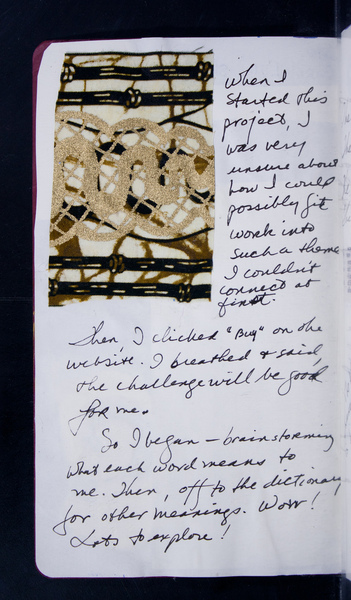 When I
started this
project, I
was very
unsure about
how I could
possibly fit
work into
such a theme
I couldn't
connect at
first.
Then I clicked "Buy" on the
website. I breathed & said,
the challenge will be good
for me.
So I began - brainstorming
what each word means to
me. Then, off to the dictionary
for other meanings. Wow!
Lots to explore!